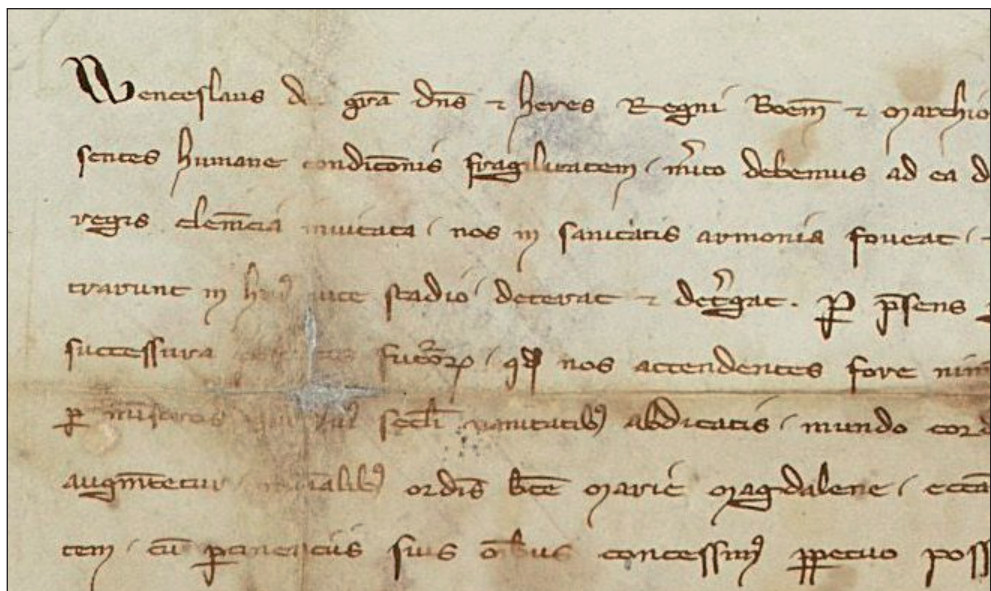 Wenceslaus d gr̄a dn̄s ⁊ heres Regni Boem̄ ⁊ Marchio
sentes humane condicōnis fragilitatem / m̍ito debemus ad ea d
regis clem̄cia inuitata / nos in sanitatis armonia foueat /
trarunt in hui᷒ uite stadio / deterat ⁊ det̍gat . ꝑ p̄sens
successura futōrꝝ / qd nos attendentes fore nim
ꝑ secl̄i uanitatib᷒ abdicatis / mundo cord
augm̄tetur ordīs bt̄e Marie Magdalene / eccā
tem / cū ꝑtinenciis suis om̄ibus concessim᷒ ꝑpetuo poss